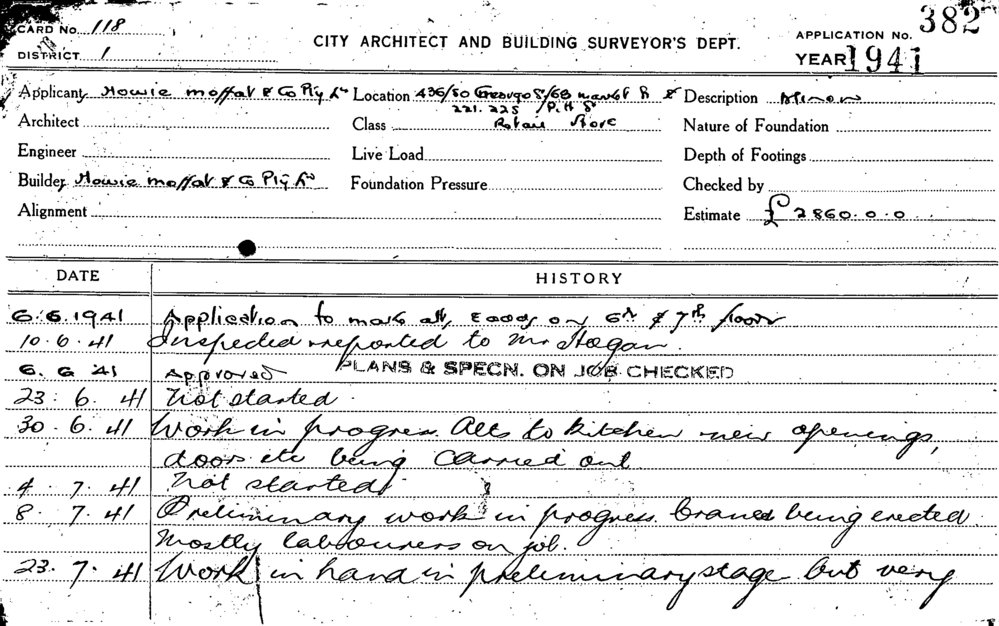 CARD No. 118
DISTRICT 1
CITY ARCHITECT AND BUILDING SURVEYOR'S DEPT.
APPLICATION No. 382
YEAR 1941
Applicant Howie Moffat & Co Pty Ltd Location 436/50 George St/68 Market St & Description Minor
221.225 P. H St
Architect Class Retail Store Nature of Foundation
Engineer Live Load Depth of Footings
Builder Howie Moffat & Co Pty Ltd Foundation Pressure Checked by
Alignment Estimate £ 2860.0.0
DATE HISTORY
6.6.1941 Application to make alts, & adds on 6th & 7th floors
10.6.41 Inspected & reported to Mr Hogan.
6.6.41 Approved PLANS & SPECN. ON JOB CHECKED
23.6.41 Not started
30.6.41 Work in progress. Alts to kitchen new openings,
doors etc being carried out
4.7.41 Not started
8.7.41 Preliminary work in progress. Cranes being erected.
Mostly labourers on job.
23.7.41 Work in hand in preliminary stage but very